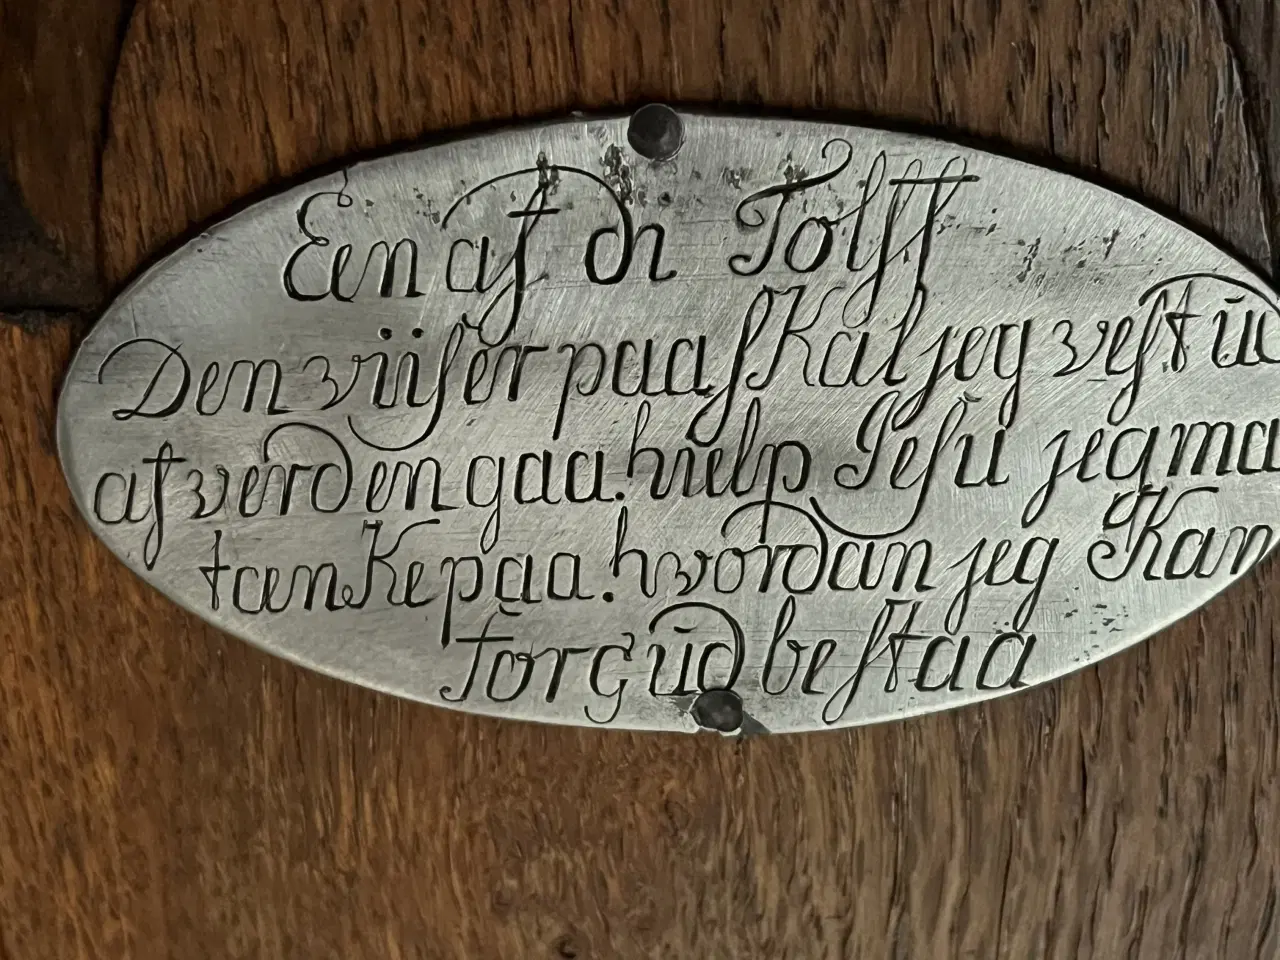 Een af di Tolff
Den viiser paa skal jeg vest ūd
af verden gaa. hielp Jesu jeg maa
tænke paa. hvordan jeg kan
for gūd bestaa